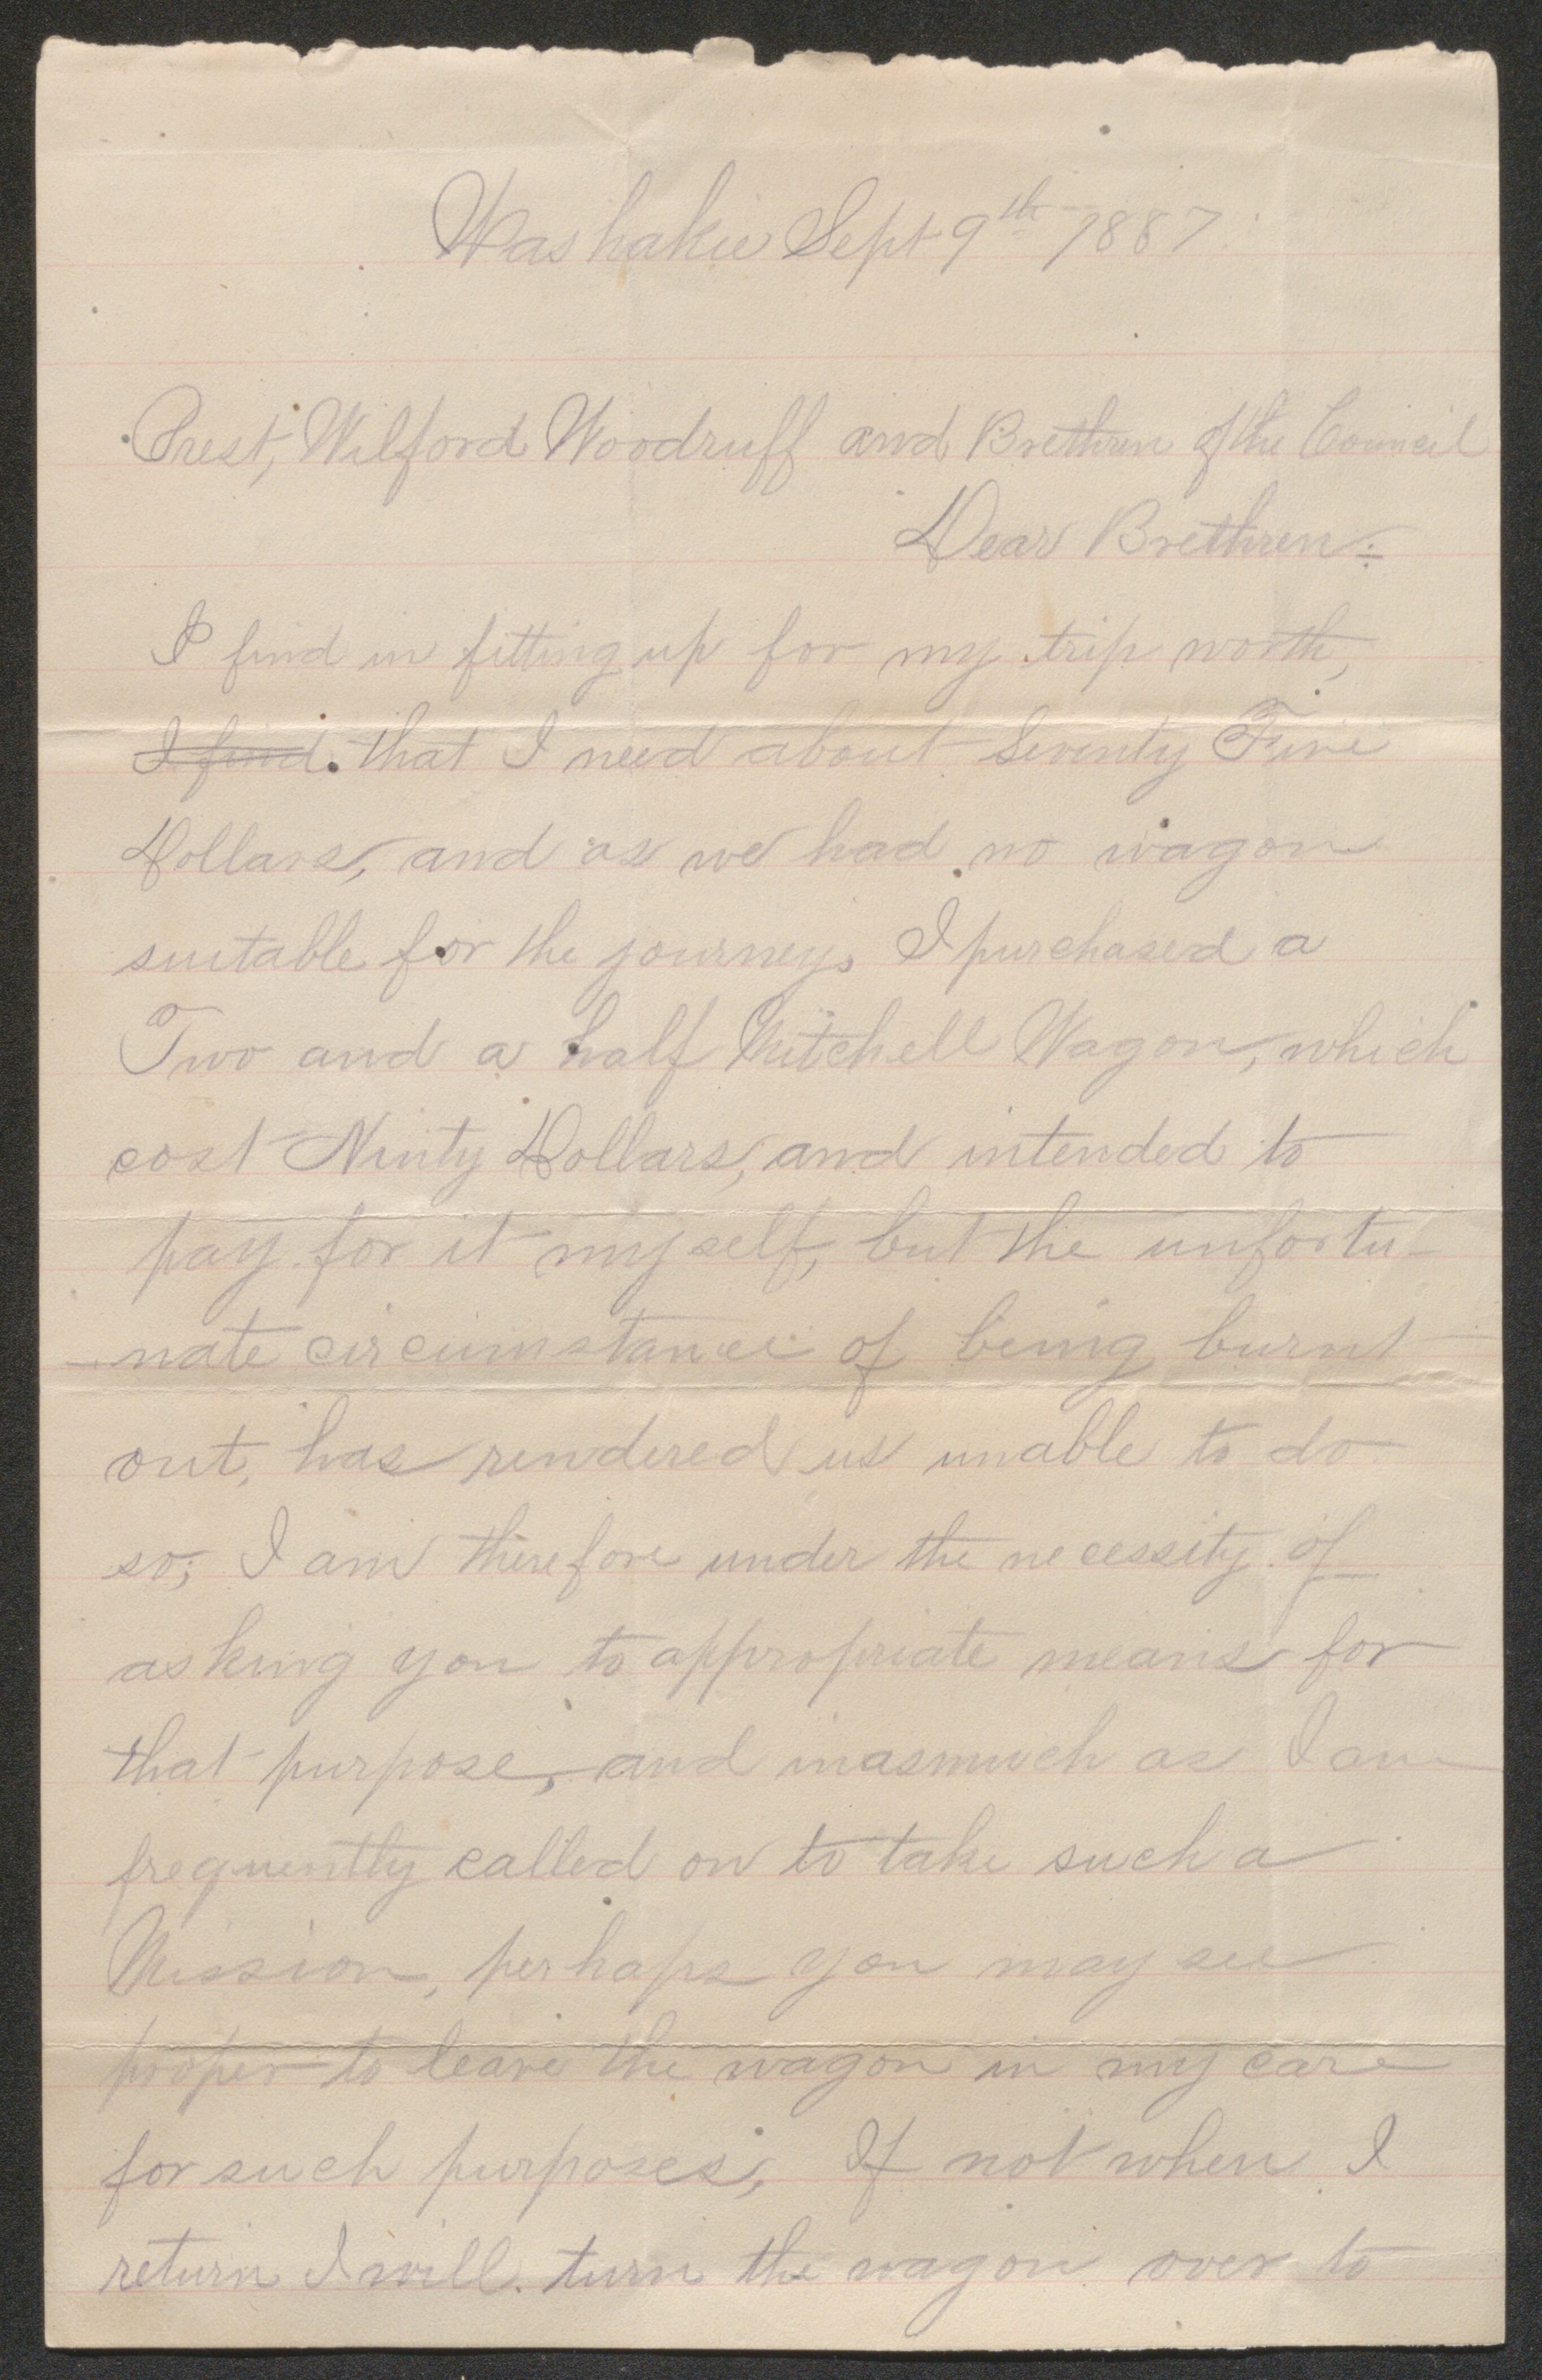 Washakie Sept 9th 1887.
Prest, Wilford Woodruff and Brethren of the Council
Dear Brethren:
I find in fitting up for my trip north,
I find that I need about Seventy Five
Dollars, and as we had no wagon
suitable for the journey, I purchased a
Two and a half Mitchell Wagon, which
cost Ninty Dollars, and intended to
pay for it myself, but the unfortu-
-nate circumstance of being burnt
out, has rendered us unable to do
so; I am therefore under the necessity of
asking you to appropriate means for
that purpose, and inasmuch as I am
frequently called on to take such a
Mission, perhaps you may see
proper to leave the wagon in my care
for such purposes, If not when I
return I will turn the wagon over to